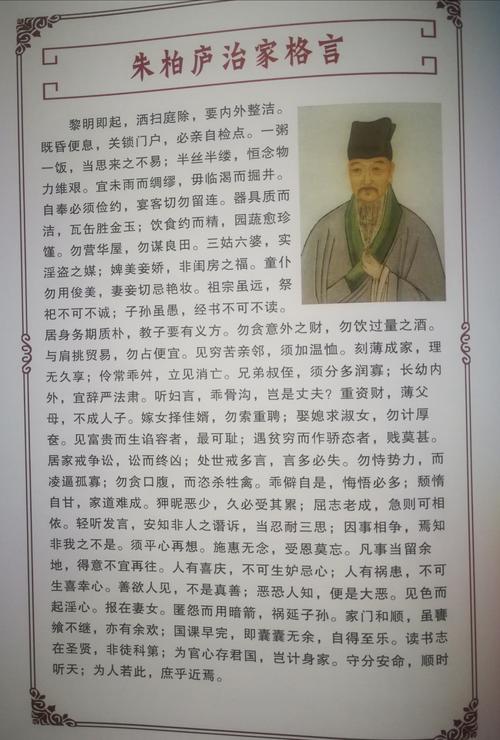 朱柏庐治家格言
黎明即起，洒扫庭除，要内外整洁。
既昏便息，关锁门户，必亲自检点。一粥
一饭，当思来之不易；半丝半缕，恒念物
力维艰。宜未雨而绸缪，毋临渴而掘井。
自奉必须俭约，宴客切勿留连。器具质而
洁，瓦缶胜金玉；饮食约而精，园蔬愈珍
馐。勿营华屋，勿谋良田。三姑六婆，实
淫盗之媒；婢美妾娇，非闺房之福。童仆
勿用俊美，妻妾切忌艳妆。祖宗虽远，祭
祀不可不诚；子孙虽愚，经书不可不读。
居身务期质朴，教子要有义方。勿贪意外之财，勿饮过量之酒。
与肩挑贸易，勿占便宜。见穷苦亲邻，须加温恤。刻薄成家，理
无久享；伦常乖舛，立见消亡。兄弟叔侄，须分多润寡；长幼内
外，宜辞严法肃。听妇言，乖骨沟，岂是丈夫？重资财，薄父
母，不成人子。嫁女择佳婿，勿索重聘；娶媳求淑女，勿计厚
奁。见富贵而生谄容者，最可耻；遇贫穷而作骄态者，贱莫甚。
居家戒争讼，讼而终凶；处世戒多言，言多必失。勿恃势力，而
凌逼孤寡；勿贪口腹，而恣杀牲禽。乖僻自是，悔悟必多；颓惰
自甘，家道难成。狎昵恶少，久必受其累；屈志老成，急则可相
依。轻听发言，安知非人之谮诉，当忍耐三思；因事相争，焉知
非我之不是。须平心再想。施惠无念，受恩莫忘。凡事当留余
地，得意不宜再往。人有喜庆，不可生妒忌心；人有祸患，不可
生喜幸心。善欲人见，不是真善；恶恐人知，便是大恶。见色而
起淫心。报在妻女。匿怨而用暗箭，祸延子孙。家门和顺，虽饔
飧不继，亦有余欢；国课早完，即囊橐无余，自得至乐。读书志
在圣贤，非徒科第；为官心存君国，岂计身家。守分安命，顺时
听天；为人若此，庶乎近焉。